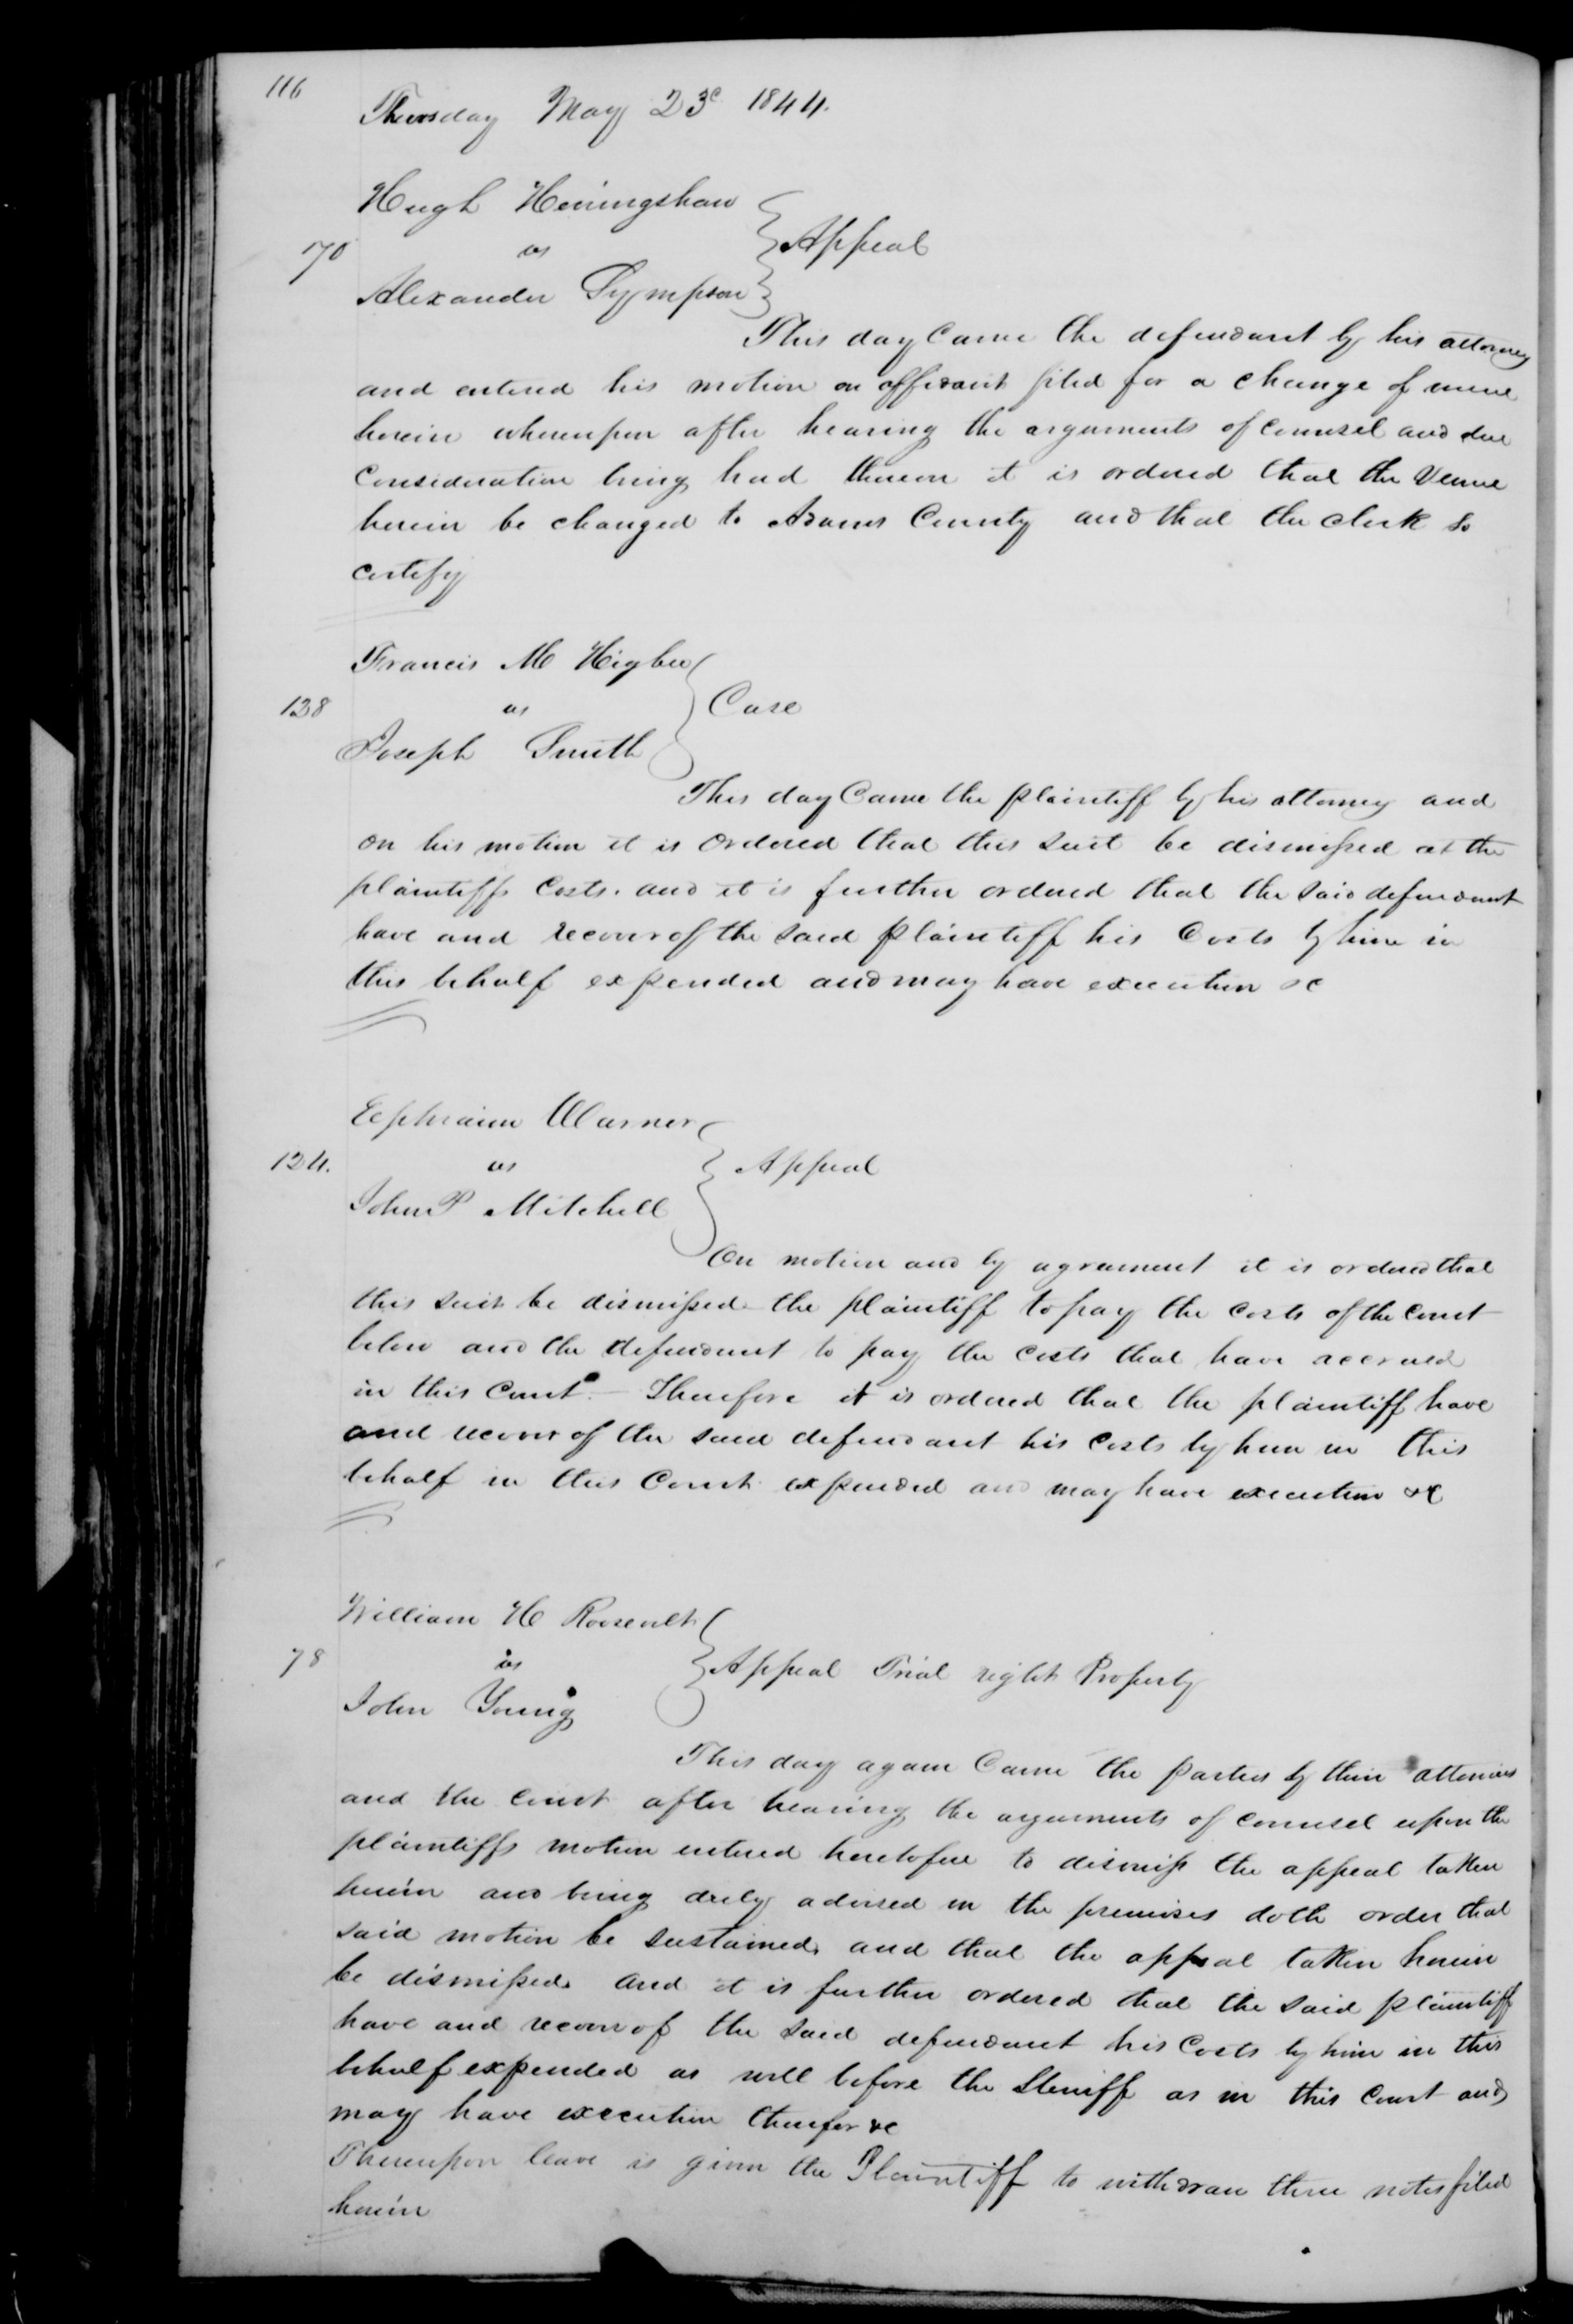 116
Thursday May 23d 1844.
Hugh Heringshaw
70 vs } Appeal
Alexander Sympson
This day Came the defendant by his attorney
and entered his motion on affidavit filed for a change of venue
herein whereupon after hearing the arguments of Counsel and due
Consideration being had thereon it is ordered that the Venue
herein be changed to Adams County and that the clerk so
certify
Francis M Higbee
128 vs } Case
Joseph Smith
This day Came the plaintiff by his attorney and
on his motion it is Ordered that this suit be dismissed at the
plaintiffs Costs. and it is further ordered that the said defendant
have and recover of the said plaintiff his Costs by him in
this behalf expended and may have execution &c
Eephraim Warner
124. vs } Appeal
John P Mitchell
On motion and by agreement it is ordered that
this suit be dismissed the plaintiff to pay the costs of the Court
below and the defendant to pay the costs that have accrued
in this Court. – Therefore it is ordered that the plaintiff have
and recover of the said defendant his costs by him in this
behalf in this Court expended and may have execution &c
William H Roosevelt
78 vs } Appeal Trial right Property
John Young
This day again Came the parties by their attornies
and the Court after hearing the arguments of counsel upon the
plaintiffs motion entered heretofore to dismiss the appeal taken
herein and being duly advised in the premises doth order that
said motion be sustained, and that the appeal taken herein
be dismissed. And it is further ordered that the said plaintiff
have and recover of the said defendant his Costs by him in this
behalf expended as well before the Sheriff as in this Court and
may have execution therefor &c
Thereupon leave is given the Plaintiff to withdraw three notes filed
herein